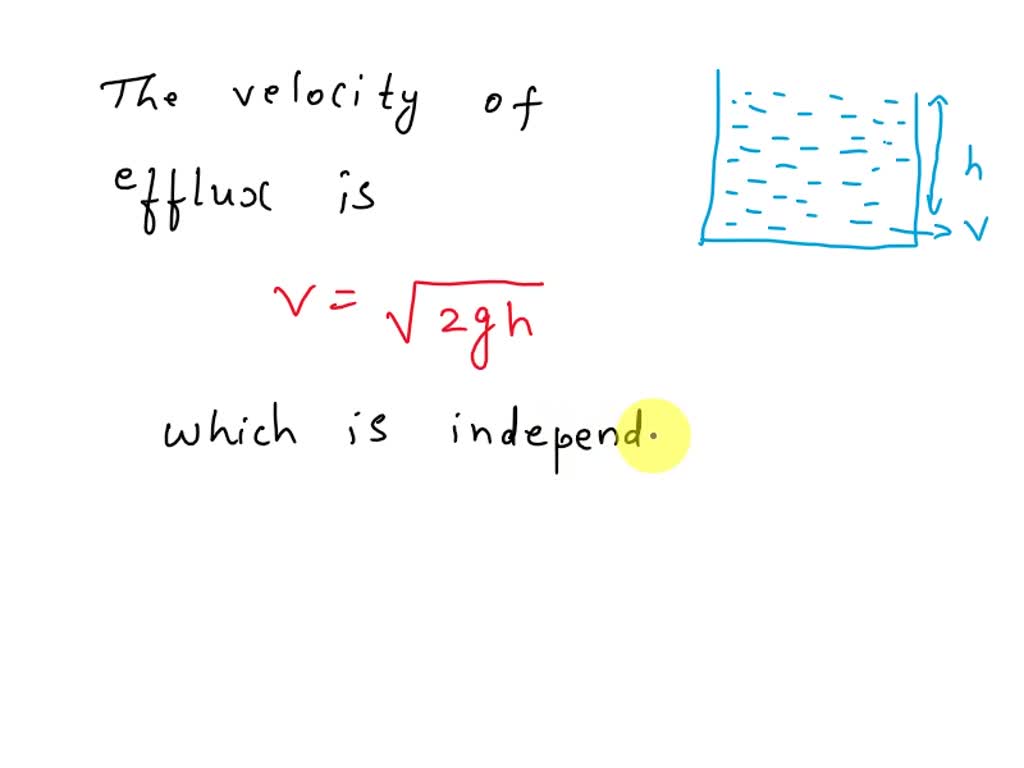 The velocity of
efflux is
v = √2gh
which is independ.
h
v